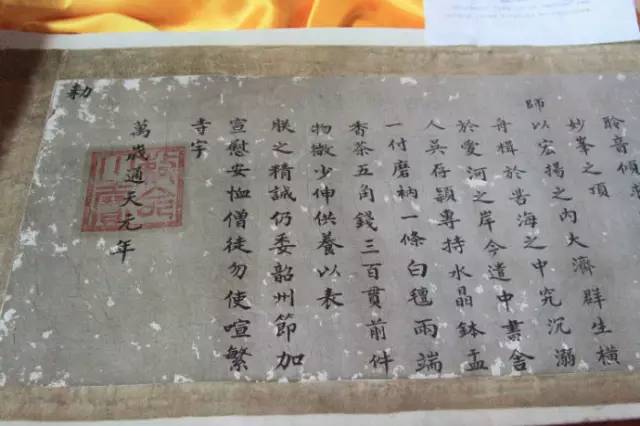 聆音傾
妙峯之頂
師以宏揚之內大濟群生橫
舟楫於苦海之中究沉溺
於愛河之岸今遣中書舍
人吳存穎專持水晶鉢盂
一付磨衲一條白氎兩端
香茶五角錢三百貫前件
物微少伸供養以表
朕之精誠仍委韶州節加
宣慰安恤僧徒勿使喧繁
寺宇
萬歲通天元年
勑